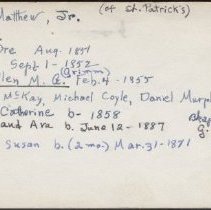 Matthew, Jr. (of St. Patrick's)
Ore Aug. 1851
Sept 1-1852
(Grimm)
llen M. G. Feb. 4-1855
McKay, Michael Coyle, Daniel Murph
Catherine b- 1858
and Ava b. June 12-1887
Susan b. (2 mo.) Mar. 31-1871